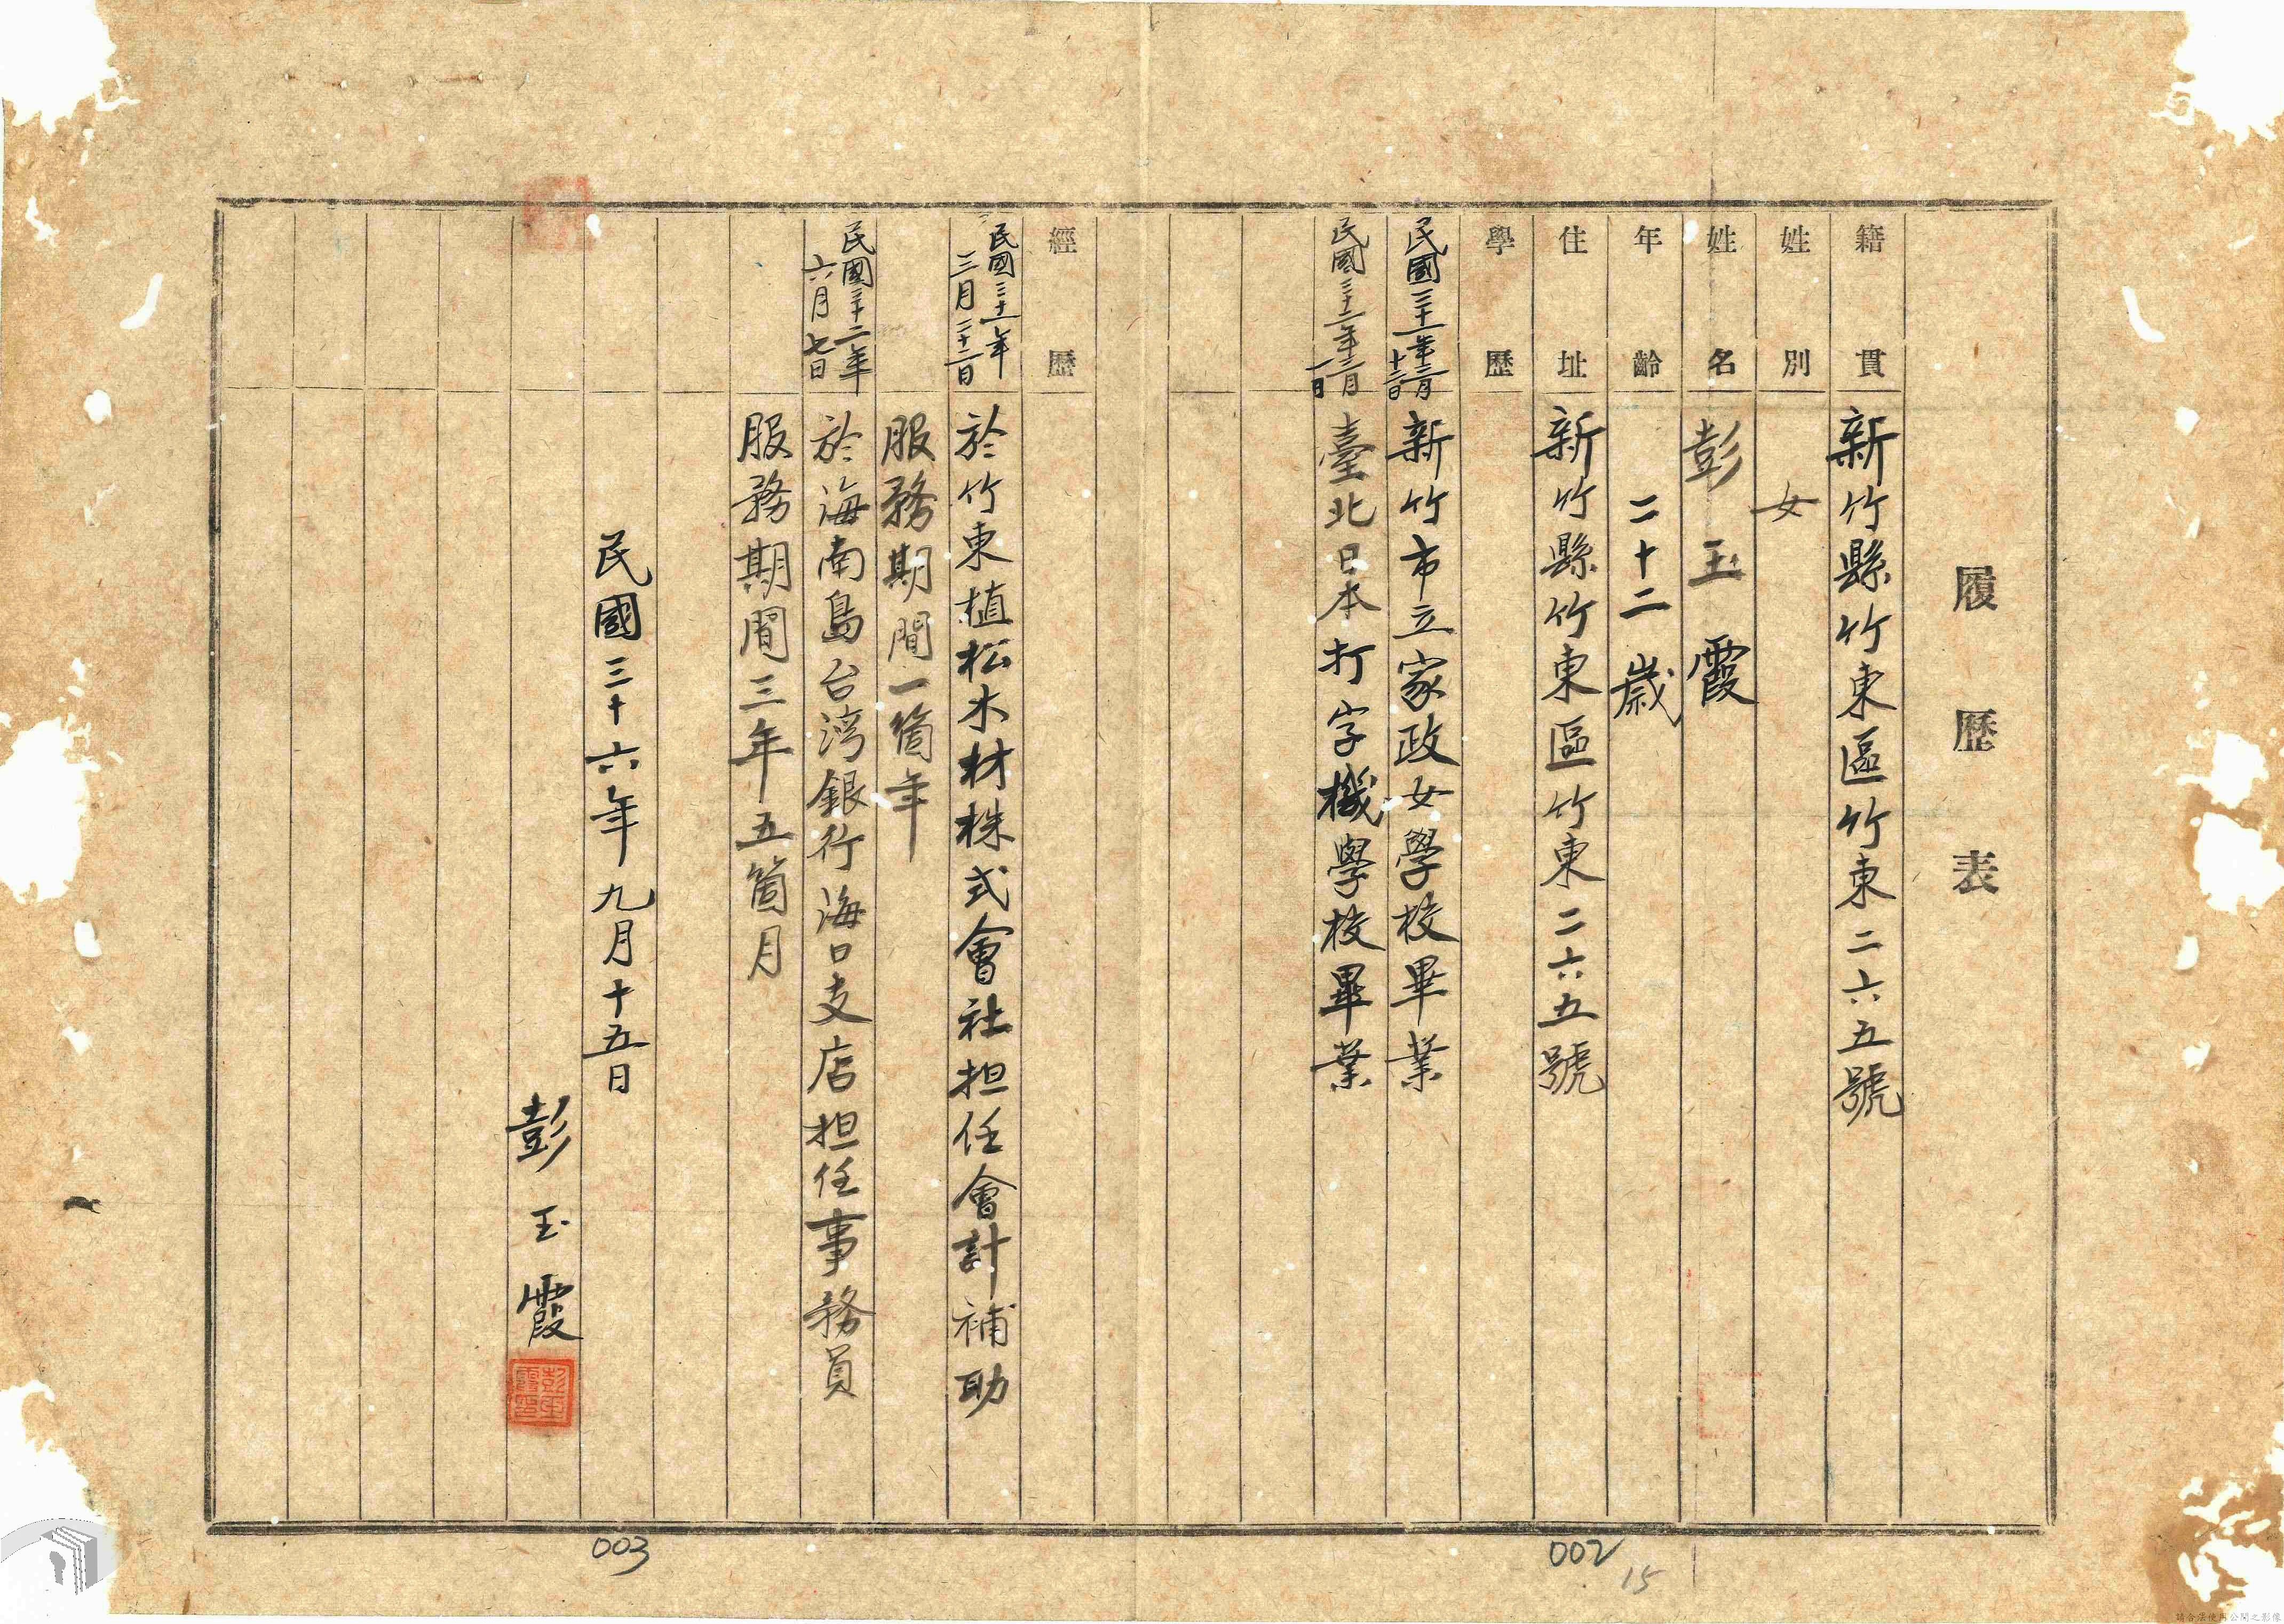 履歷表
籍貫 新竹縣竹東區竹東二六五號
姓別 女
姓名 彭玉霞
年齡 二十二歲
住址 新竹縣竹東區竹東二六五號
學歷
民國三十一年三月十二日 新竹市立家政女學校畢業
民國三十二年三月一日 臺北日本打字機學校畢業
經歷
民國三十一年三月二十二日 於竹東植松木材株式會社担任會計補助
服務期間一箇年
民國三十二年六月七日 於海南島台湾銀行海口支店担任事務員
服務期間三年五箇月
民國三十六年九月十五日
彭玉霞
002
15
003